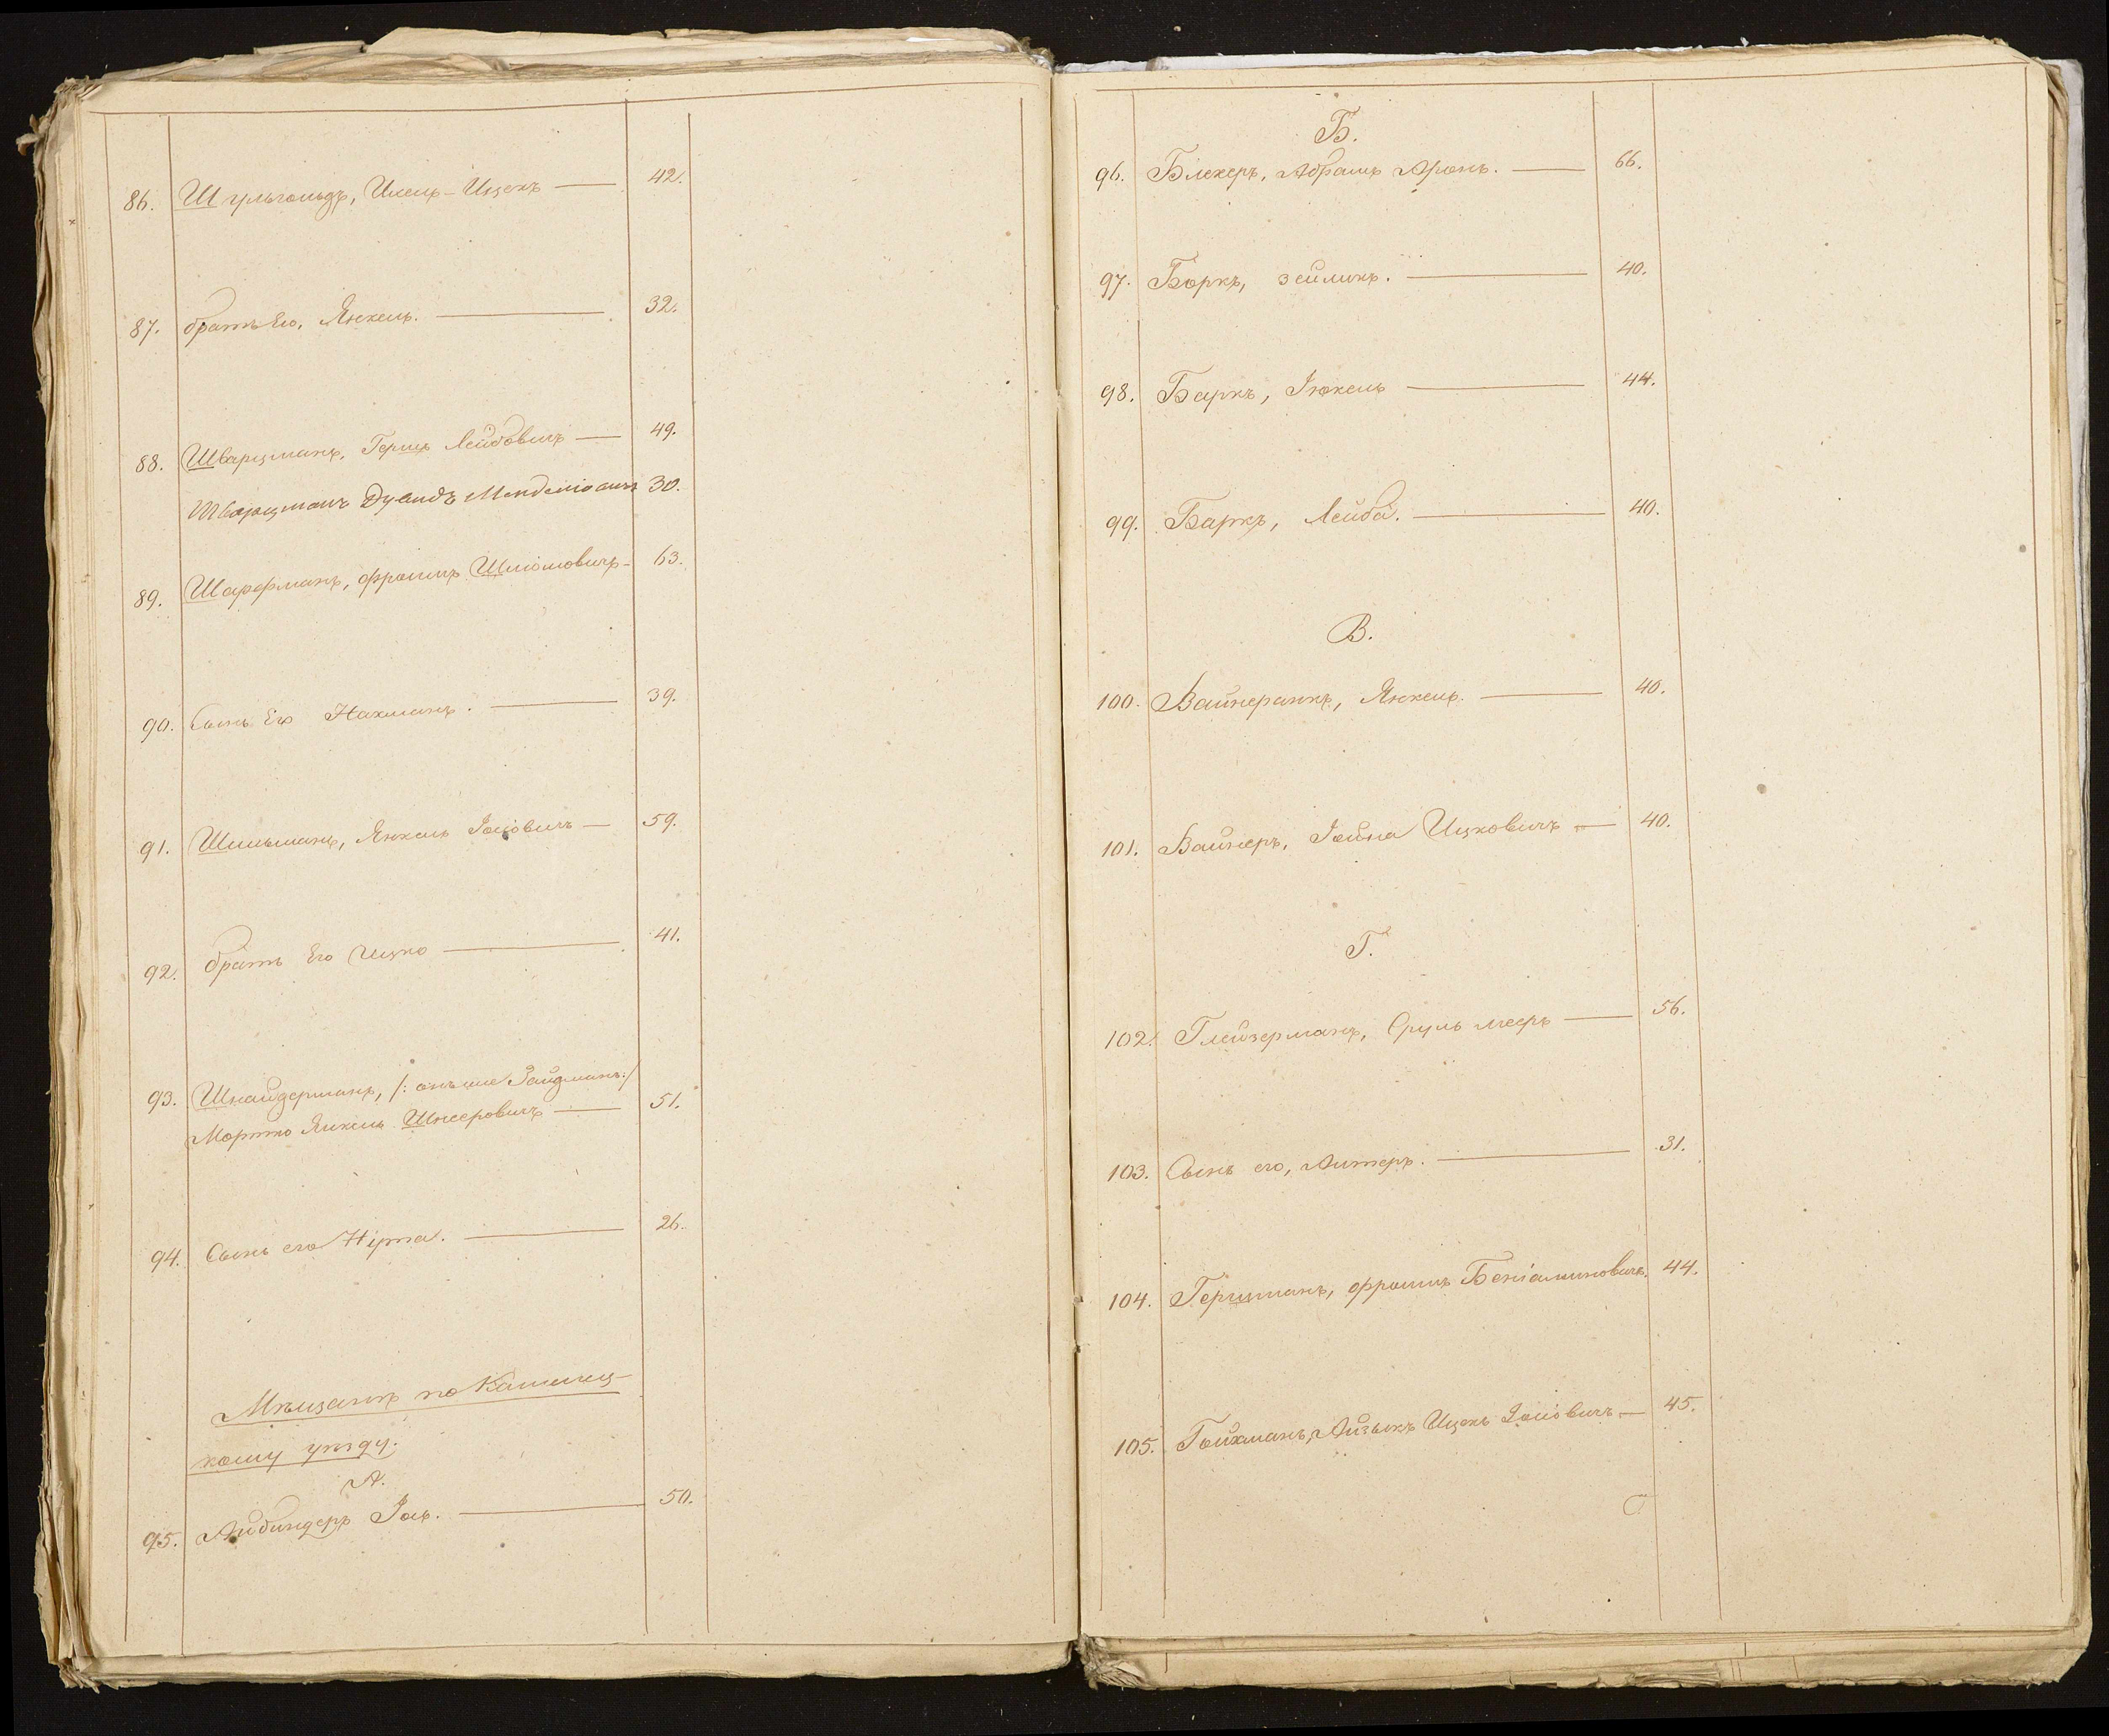 86. Шульгольдъ, Исель-Ицекъ — 42.
87. братъ Его, Янкель. — 32.
88. Шварцманъ, Гершъ Лейбовичъ — 49.
Шварцманъ Дувидъ Менделіовичъ 30.
89. Шарфманъ, Фроимъ Шліомовичъ — 63.
90. Сынъ Его Нахманъ. — 39.
91. Шильманъ, Янкель Іосіовичъ — 59.
92. братъ Его Ицко — 41.
93. Шнайдерманъ, /: онъ же Зайдманъ:/
Мортко Янкель Шнееровичъ — 51.
94. Сынъ его Нута. — 26.
Мѣщанъ по Каменец-
кому уѣзду.
А.
95. Айбиндеръ Іось. — 50.
Б.
96. Блехеръ, Абрамъ Аронъ. — 66.
97. Боркъ, Зейликъ. — 40.
98. Баркъ, Іокель — 44.
99. Баркъ, Лейба. — 40.
В.
100. Вайнеранкъ, Янкель. — 40.
101. Вайнеръ, Іойна Ицковичъ — 40.
Г.
102. Глейзерманъ, Сруль Мееръ — 56.
103. Сынъ его, Алтеръ. — 31.
104. Герцманъ, Фроимъ Беніаминовичъ. 44.
105. Гойхманъ, Айзыкъ Ицекъ Іосіовичъ — 45.